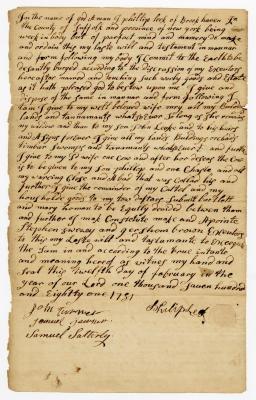 In the name of god Amen I phillip leek of Brook haven In
the County of Suffolk and provience of new york being
week in body but of parfait mind and memory Do make
and ordain this my laste will and testament in mannar
and form following my body I Commit to the Earth to be
desantly buryed according to the discrassion of my Executors
hereafter named and touching such worly goods and Estate
as it hath pleased god to bestow upon me I give and
dispose of the same in mannar and form following I
tem I give to my well beloved wife mry all my
lands and tannamants whatsoever so long as she remains
my widdow and then to my Son John leeke and to his heirs
and Assigs forever I give all my land buildings orchards
timbar Swamps and tannamants whatsoever and further
I give to my Sd wife one Cow and after her deseas the Cow
is to be given to my Son phillip and one Chayer and all
my waring Close and A bed that my Cattel big and
further I give the remainder of my Cattel and my
household goods to my two daftars Submit bartlatt
and mary homan to be Equilly divided between them
and further of mak Constetute make and Appointe
Stephen swesey and gershom brown Executors
to this my laste will and tastamante to Execopte
the Sam in and according to the true intante
and meaning hereof as witnes my hand and
seal this twelfth day of february in the
year of our Lord one thousand Seven hundred
and Eighty one 1751
John turner
Samuel
Samuel Satterly